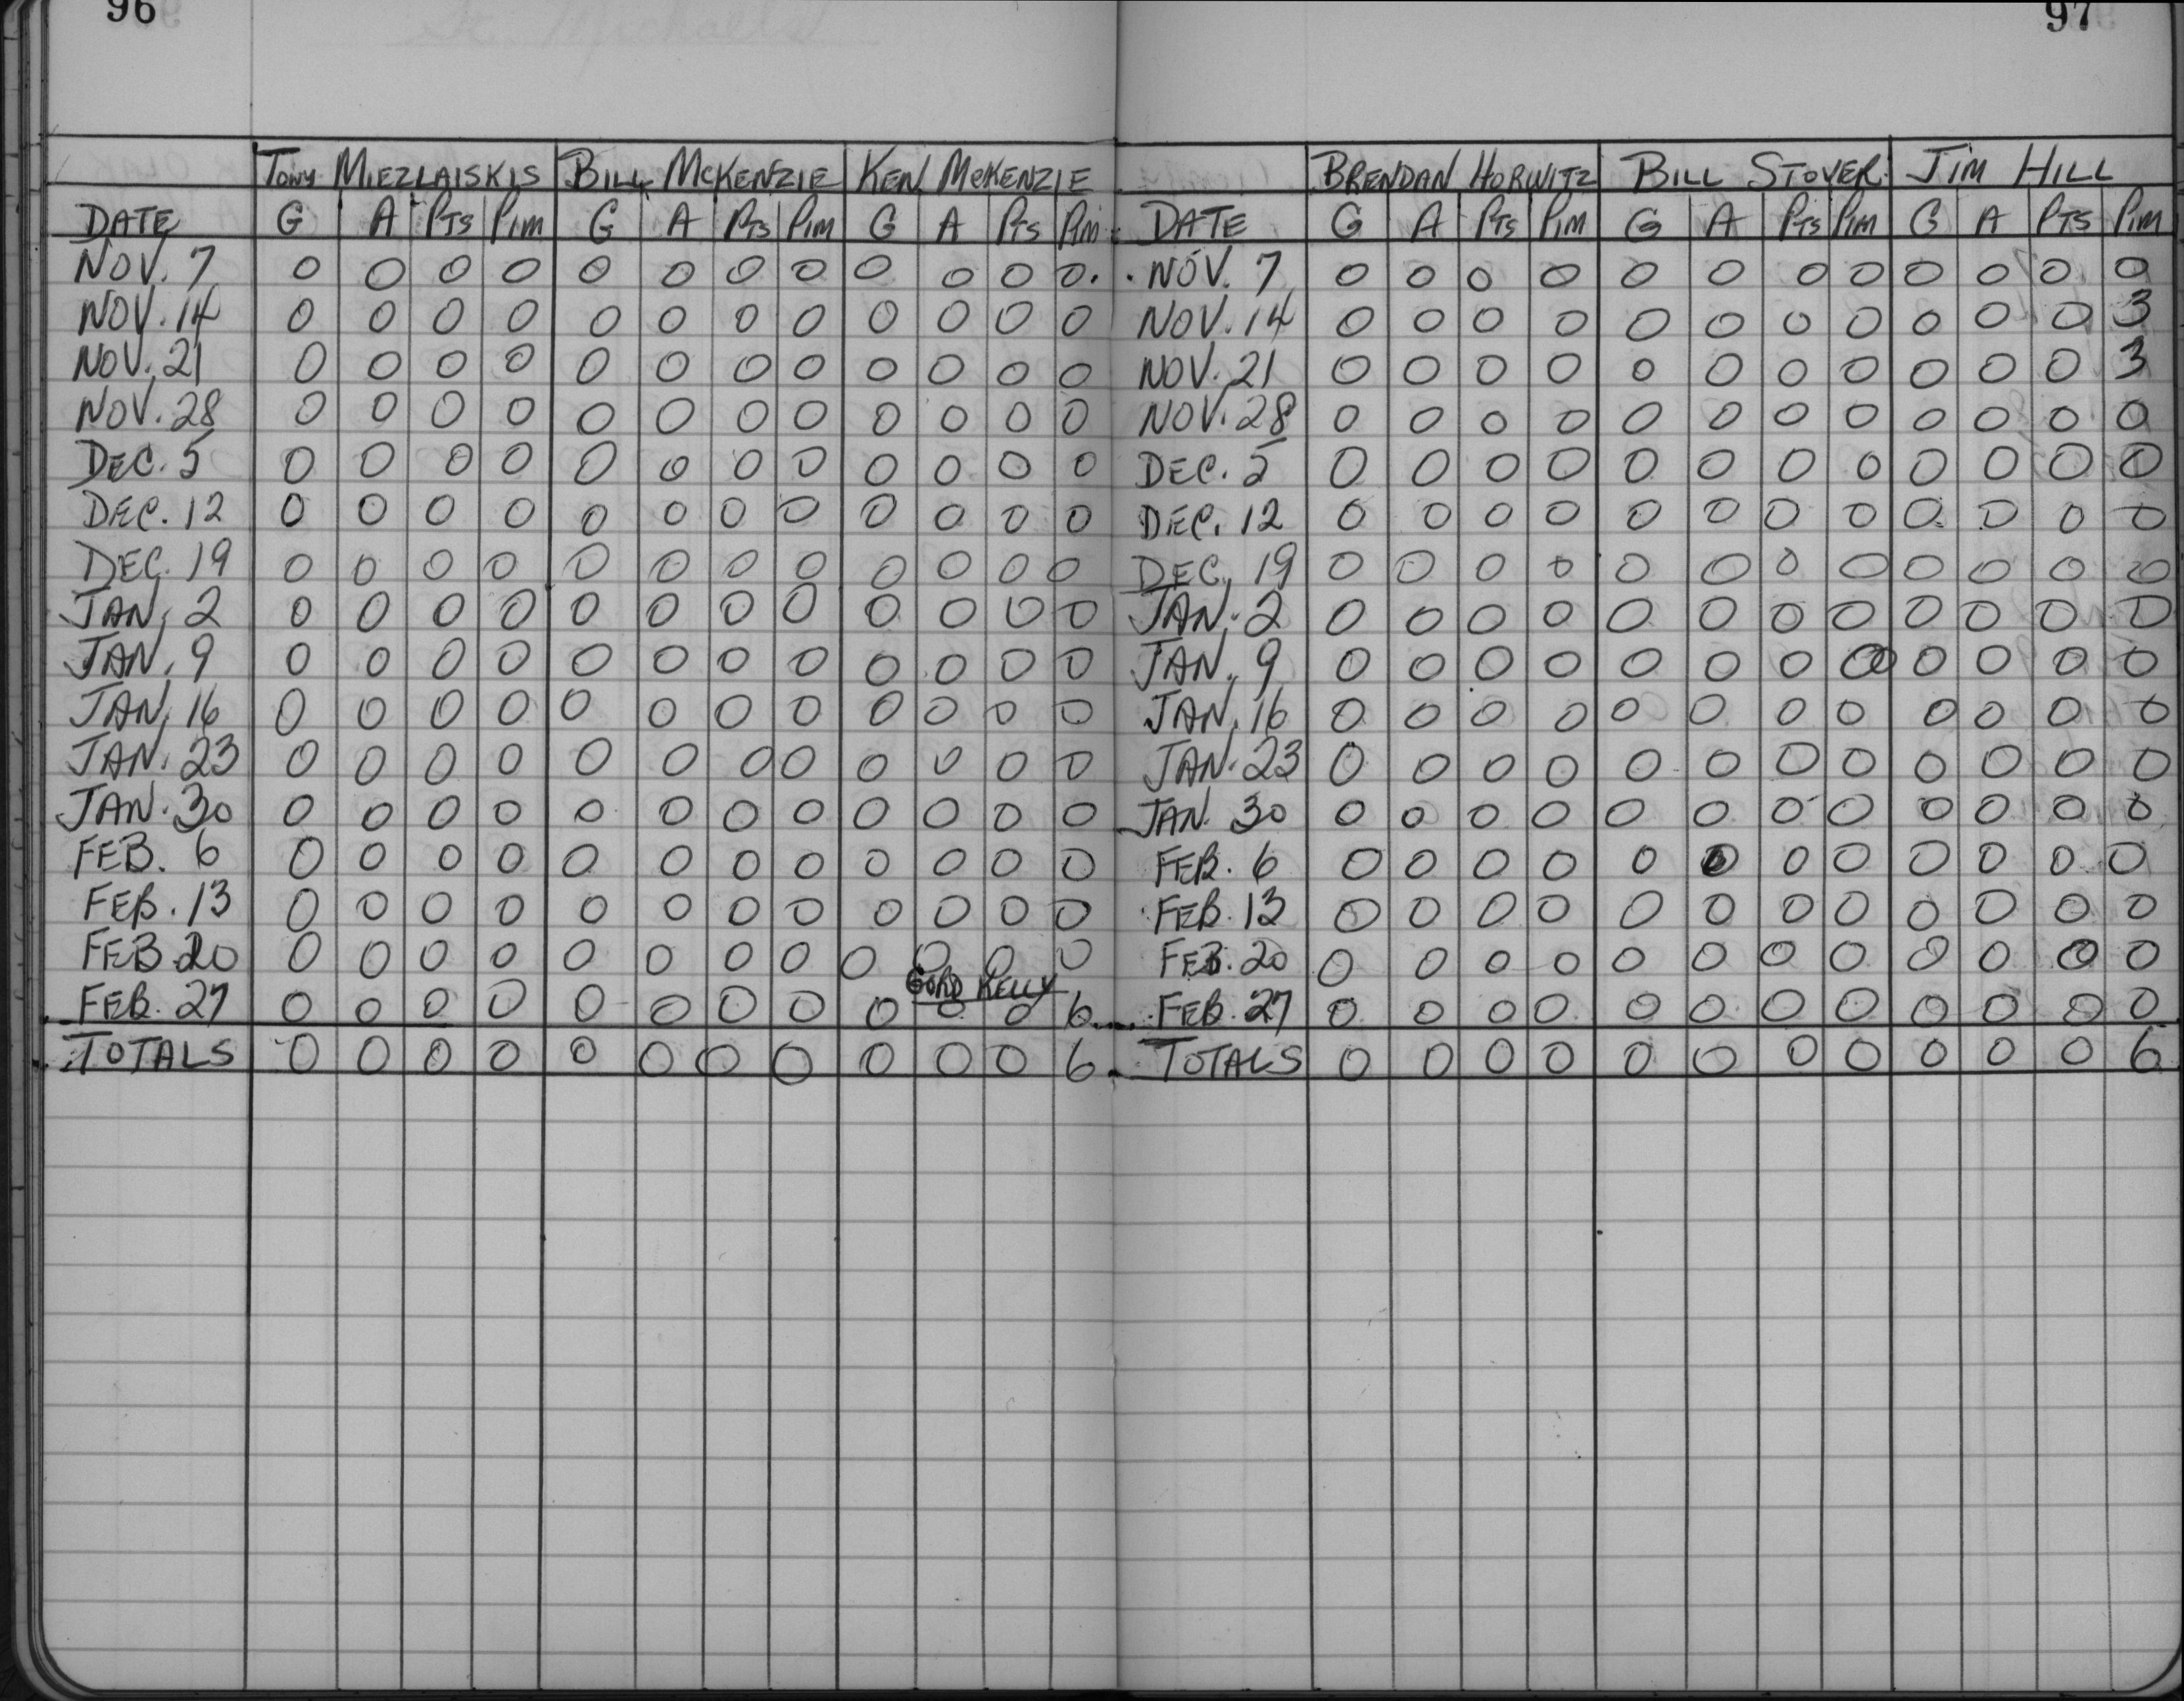 96
TONY MIEZLAISKIS BILL MCKENZIE KEN MCKENZIE
DATE G A PTS PIM G A PTS PIM G A PTS PIM
NOV. 7 0 0 0 0 0 0 0 0 0 0 0 0
NOV. 14 0 0 0 0 0 0 0 0 0 0 0 0
NOV. 21 0 0 0 0 0 0 0 0 0 0 0 0
NOV. 28 0 0 0 0 0 0 0 0 0 0 0 0
DEC. 5 0 0 0 0 0 0 0 0 0 0 0 0
DEC. 12 0 0 0 0 0 0 0 0 0 0 0 0
DEC. 19 0 0 0 0 0 0 0 0 0 0 0 0
JAN. 2 0 0 0 0 0 0 0 0 0 0 0 0
JAN. 9 0 0 0 0 0 0 0 0 0 0 0 0
JAN. 16 0 0 0 0 0 0 0 0 0 0 0 0
JAN. 23 0 0 0 0 0 0 0 0 0 0 0 0
JAN. 30 0 0 0 0 0 0 0 0 0 0 0 0
FEB. 6 0 0 0 0 0 0 0 0 0 0 0 0
FEB. 13 0 0 0 0 0 0 0 0 0 0 0 0
FEB. 20 0 0 0 0 0 0 0 0 0 0 0 0
GORD KELLY
FEB. 27 0 0 0 0 0 0 0 0 0 0 0 6
TOTALS 0 0 0 0 0 0 0 0 0 0 0 6
97
BRENDAN HORWITZ BILL STOVER JIM HILL
DATE G A PTS PIM G A PTS PIM G A PTS PIM
NOV. 7 0 0 0 0 0 0 0 0 0 0 0 0
NOV. 14 0 0 0 0 0 0 0 0 0 0 0 3
NOV. 21 0 0 0 0 0 0 0 0 0 0 0 3
NOV. 28 0 0 0 0 0 0 0 0 0 0 0 0
DEC. 5 0 0 0 0 0 0 0 0 0 0 0 0
DEC. 12 0 0 0 0 0 0 0 0 0 0 0 0
DEC. 19 0 0 0 0 0 0 0 0 0 0 0 0
JAN. 2 0 0 0 0 0 0 0 0 0 0 0 0
JAN. 9 0 0 0 0 0 0 0 0 0 0 0 0
JAN. 16 0 0 0 0 0 0 0 0 0 0 0 0
JAN. 23 0 0 0 0 0 0 0 0 0 0 0 0
JAN. 30 0 0 0 0 0 0 0 0 0 0 0 0
FEB. 6 0 0 0 0 0 0 0 0 0 0 0 0
FEB. 13 0 0 0 0 0 0 0 0 0 0 0 0
FEB. 20 0 0 0 0 0 0 0 0 0 0 0 0
FEB. 27 0 0 0 0 0 0 0 0 0 0 0 0
TOTALS 0 0 0 0 0 0 0 0 0 0 0 6